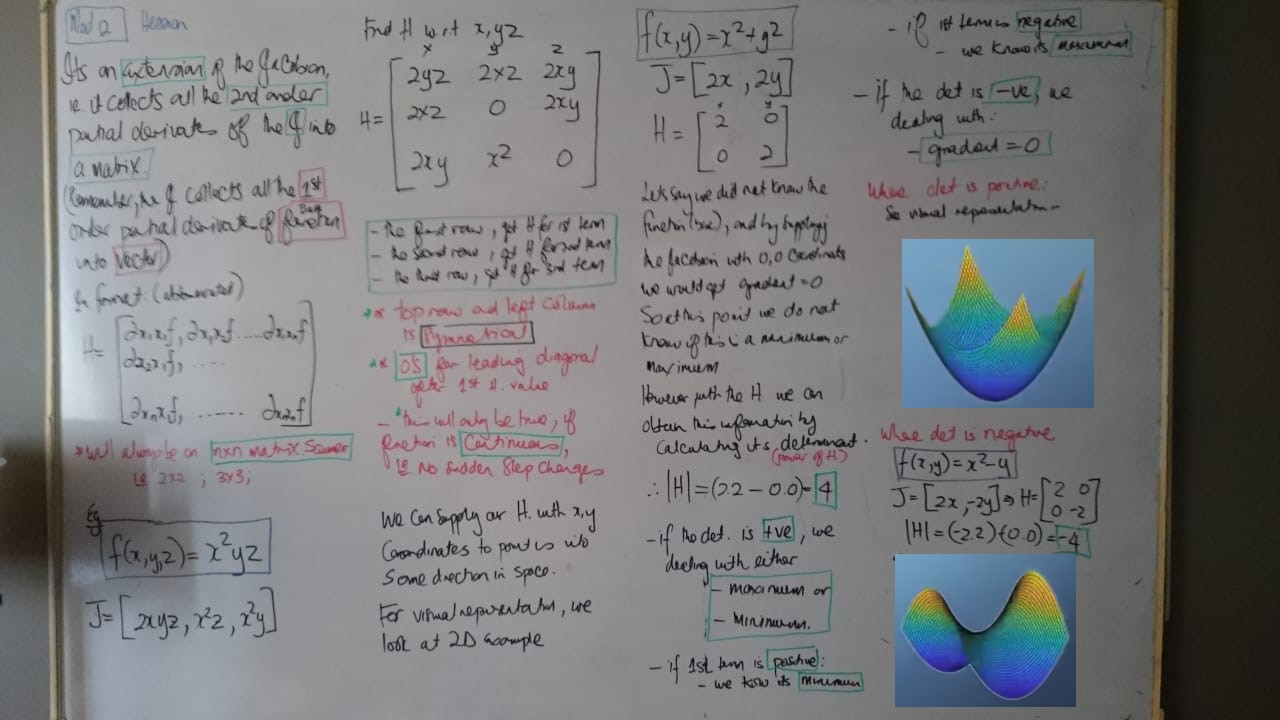 Mod 2 Hessian
Its an extension of the Jacobian,
ie it collects all the 2nd order
partial derivates of the f into
a matrix.
(Remember, the J collects all the 1st
order partial derivate of function
into vector)
In format: (abbreviated)
H = [∂x₁x₁f, ∂x₁x₂f ..... ∂x₁xₙf
∂x₂x₁f, ....
∂xₙx₁f, ...... ∂xₙxₙf]
* Will always be an nxn matrix square
ie 2x2 ; 3x3;
Eg
f(x,y,z) = x²yz
J = [2xyz, x²z, x²y]
Find H w.r.t x,y,z
x y z
H = [2yz 2xz 2xy
2xz 0 2xy
2xy x² 0]
- the first row, get H for 1st term
- the second row, get H for 2nd term
- the third row, get H for 3rd term
** top row and left column
is symmetrical
** 0's for leading diagonal
after 1st H. value
- *this will only be true, if
function is continuous,
ie no sudden step changes
We can supply our H. with x,y
coordinates to point us into
some direction in space.
For visual representation, we
look at 2D example
f(x,y) = x²+y²
J = [2x, 2y]
x y
H = [2 0
0 2]
Lets say we did not know the
function, and by supplying
the Jacobian with 0,0 coordinate
we would get gradient = 0
So at this point we do not
know if this is a minimum or
maximum
However with the H we can
obtain this information by
calculating its determinant.
(power of H)
∴ |H| = (2.2 - 0.0) = 4
- if the det. is +ve, we
dealing with either
- maximum or
- minimum.
- if 1st term is positive:
- we know its minimum
- if 1st term is negative
- we know its maximum
- if the det is -ve, we
dealing with:
- gradient = 0
When det is positive:
So visual representation -
When det is negative
f(x,y) = x²-y
J = [2x, -2y] ⇒ H = [2 0
0 -2]
|H| = (-2.2) - (0.0) = -4